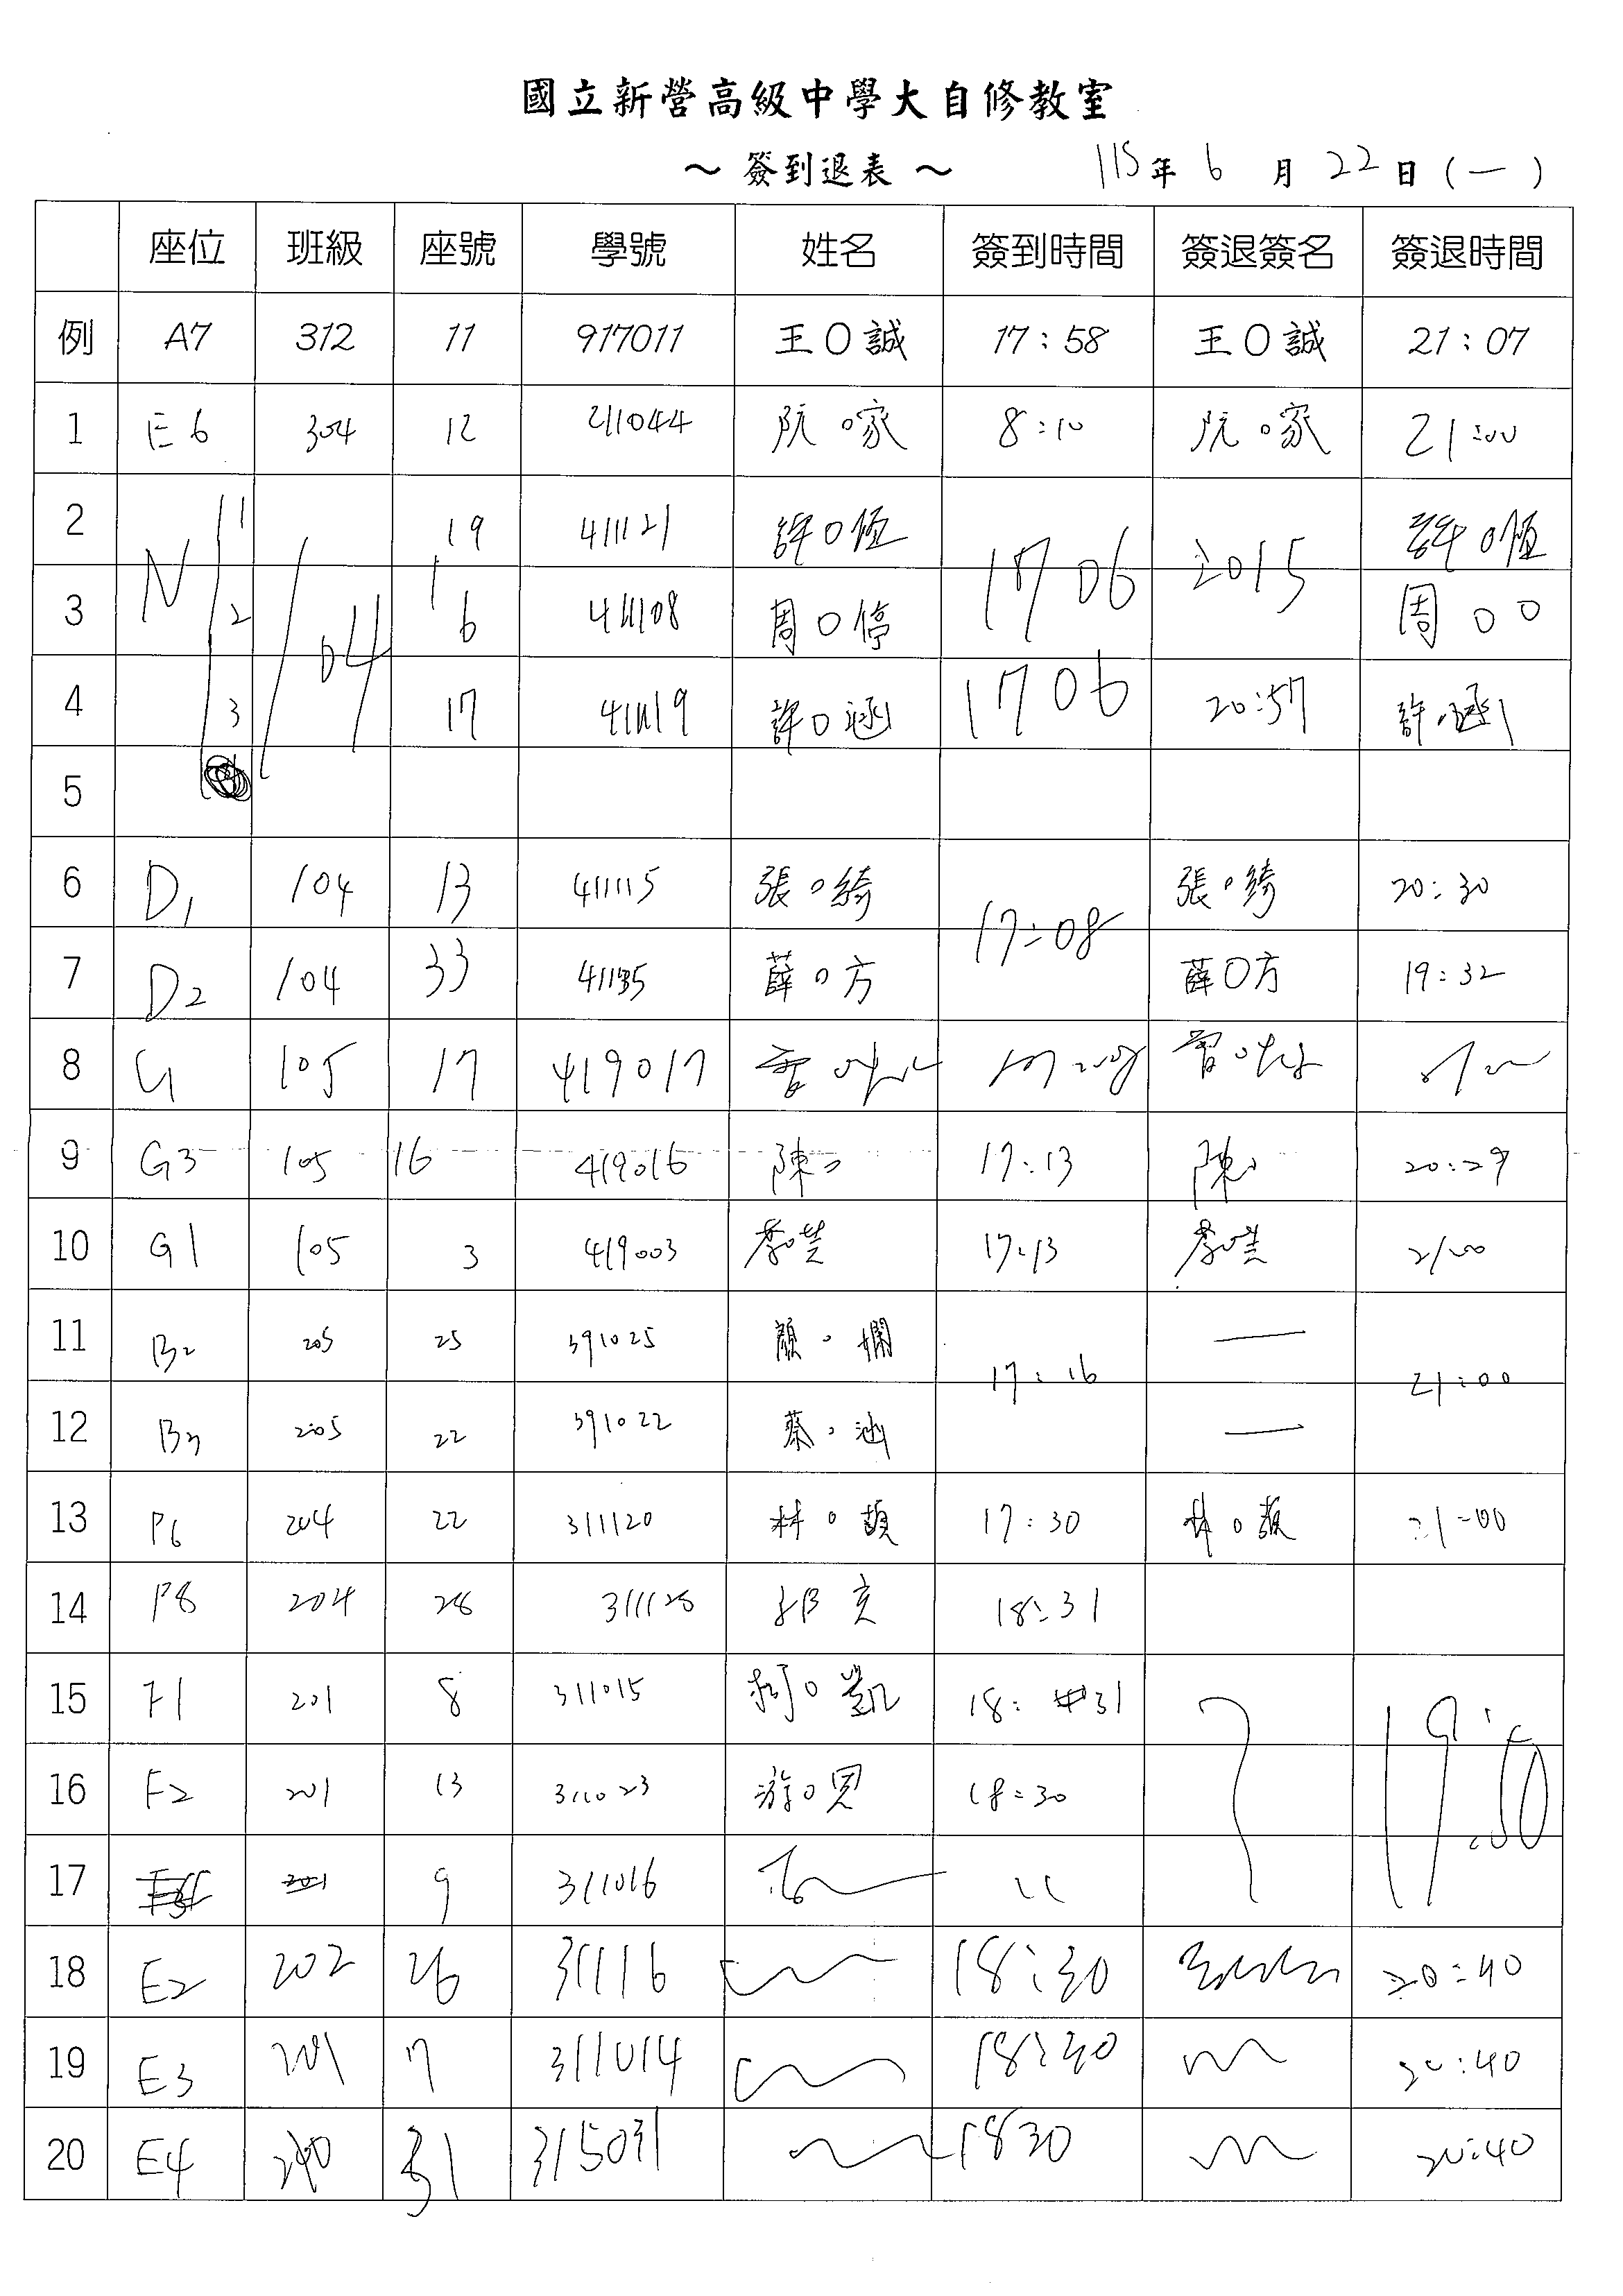 國立新營高級中學大自修教室
～ 簽到退表 ～ 115年 6 月 22 日 ( 一 )
座位 班級 座號 學號 姓名 簽到時間 簽退簽名 簽退時間
例 A7 312 11 917011 王〇誠 17:58 王〇誠 21:07
1 E6 304 12 211044 阮〇家 8:10 阮〇家 21:00
2 N 1 104 19 411121 許〇恆 1706 2015 許〇恆
3 2 16 411108 周〇停 周〇〇
4 3 17 411119 許〇涵 1706 20:57 許〇涵
5
6 D1 104 13 411115 張〇綺 17:08 張〇綺 20:30
7 D2 104 33 411135 薛〇方 薛〇方 19:32
8 105 17 419017
9 G3 105 16 419016 陳〇 17:13 陳〇 20:29
10 G1 105 3 419003 17:13 21:00
11 B2 205 25 391025 顏〇嫻 17:16 — 21:00
12 B3 205 22 391022 蔡〇涵 —
13 P6 204 22 311120 林〇蓢 17:30 林〇蓢 21:00
14 P8 204 28 311128 18:31
15 F1 201 8 311015 柯〇凱 18:31 19:50
16 F2 201 13 311023 游〇恩 18:30
17 201 9 311016 〃
18 E2 202 26 311116 18:30 20:40
19 E3 201 7 311014 18:30 20:40
20 E4 31 315031 1830 20:40